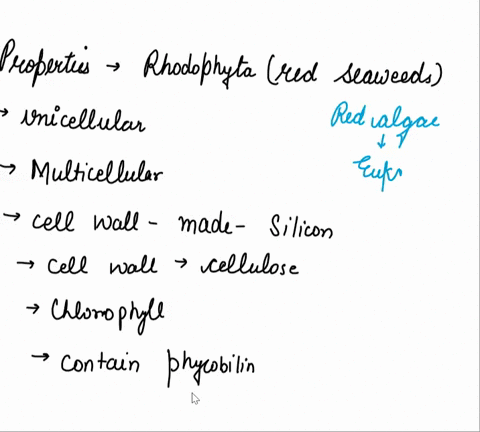 Properties → Rhodophyta (red seaweeds)
→ Unicellular
Red algae
↓ ↑
Euk
→ Multicellular
→ cell wall - made - Silicon
→ cell wall → cellulose
→ Chlorophyll
→ contain phycobilin